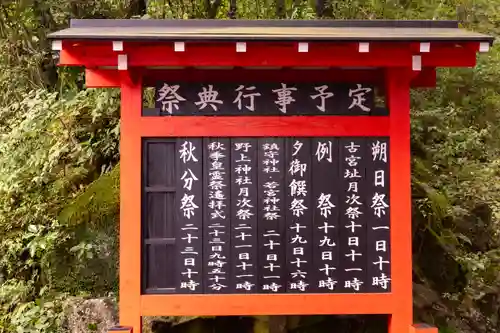 祭典行事予定
朔日祭 一日十時
古宮址月次祭 十日十一時
例祭 十九日十時
夕御饌祭 十九日十六時
鎮守神社・若宮神社祭 二十日十一時
野上神社月次祭 二十一日十時
秋季皇霊祭遙拝式 二十三日九時五十分
秋分祭 二十三日十時